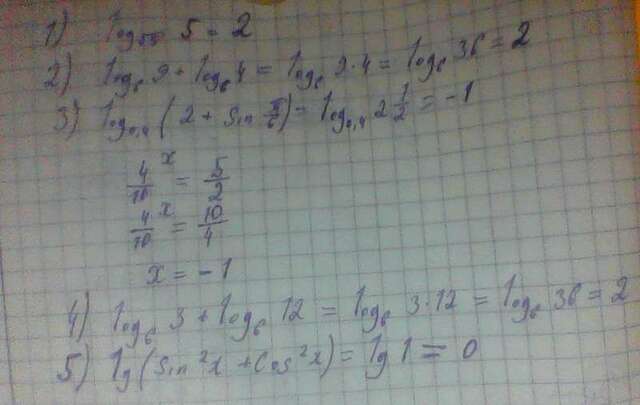 1) log 5 = 2
2) log₆ 9 + log₆ 4 = log₆ 9·4 = log₆ 36 = 2
3) log₀,₄ (2 + sin π/6) = log₀,₄ 2 1/2 = -1
4/10 ˣ = 5/2
4/10 ˣ = 10/4
x = -1
4) log₆ 3 + log₆ 12 = log₆ 3·12 = log₆ 36 = 2
5) lg (sin²x + cos²x) = lg 1 = 0